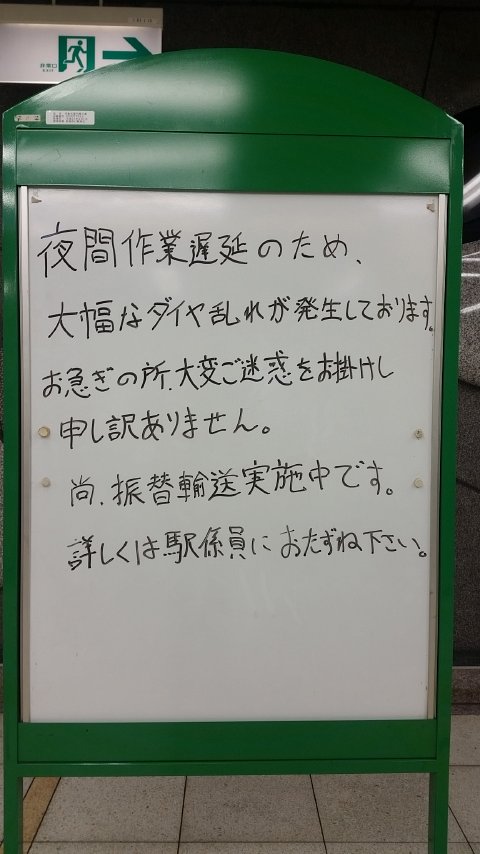 非常口
EXIT
夜間作業遅延のため、
大幅なダイヤ乱れが発生しております。
お急ぎの所、大変ご迷惑をお掛けし
申し訳ありません。
尚、振替輸送実施中です。
詳しくは駅係員におたずね下さい。